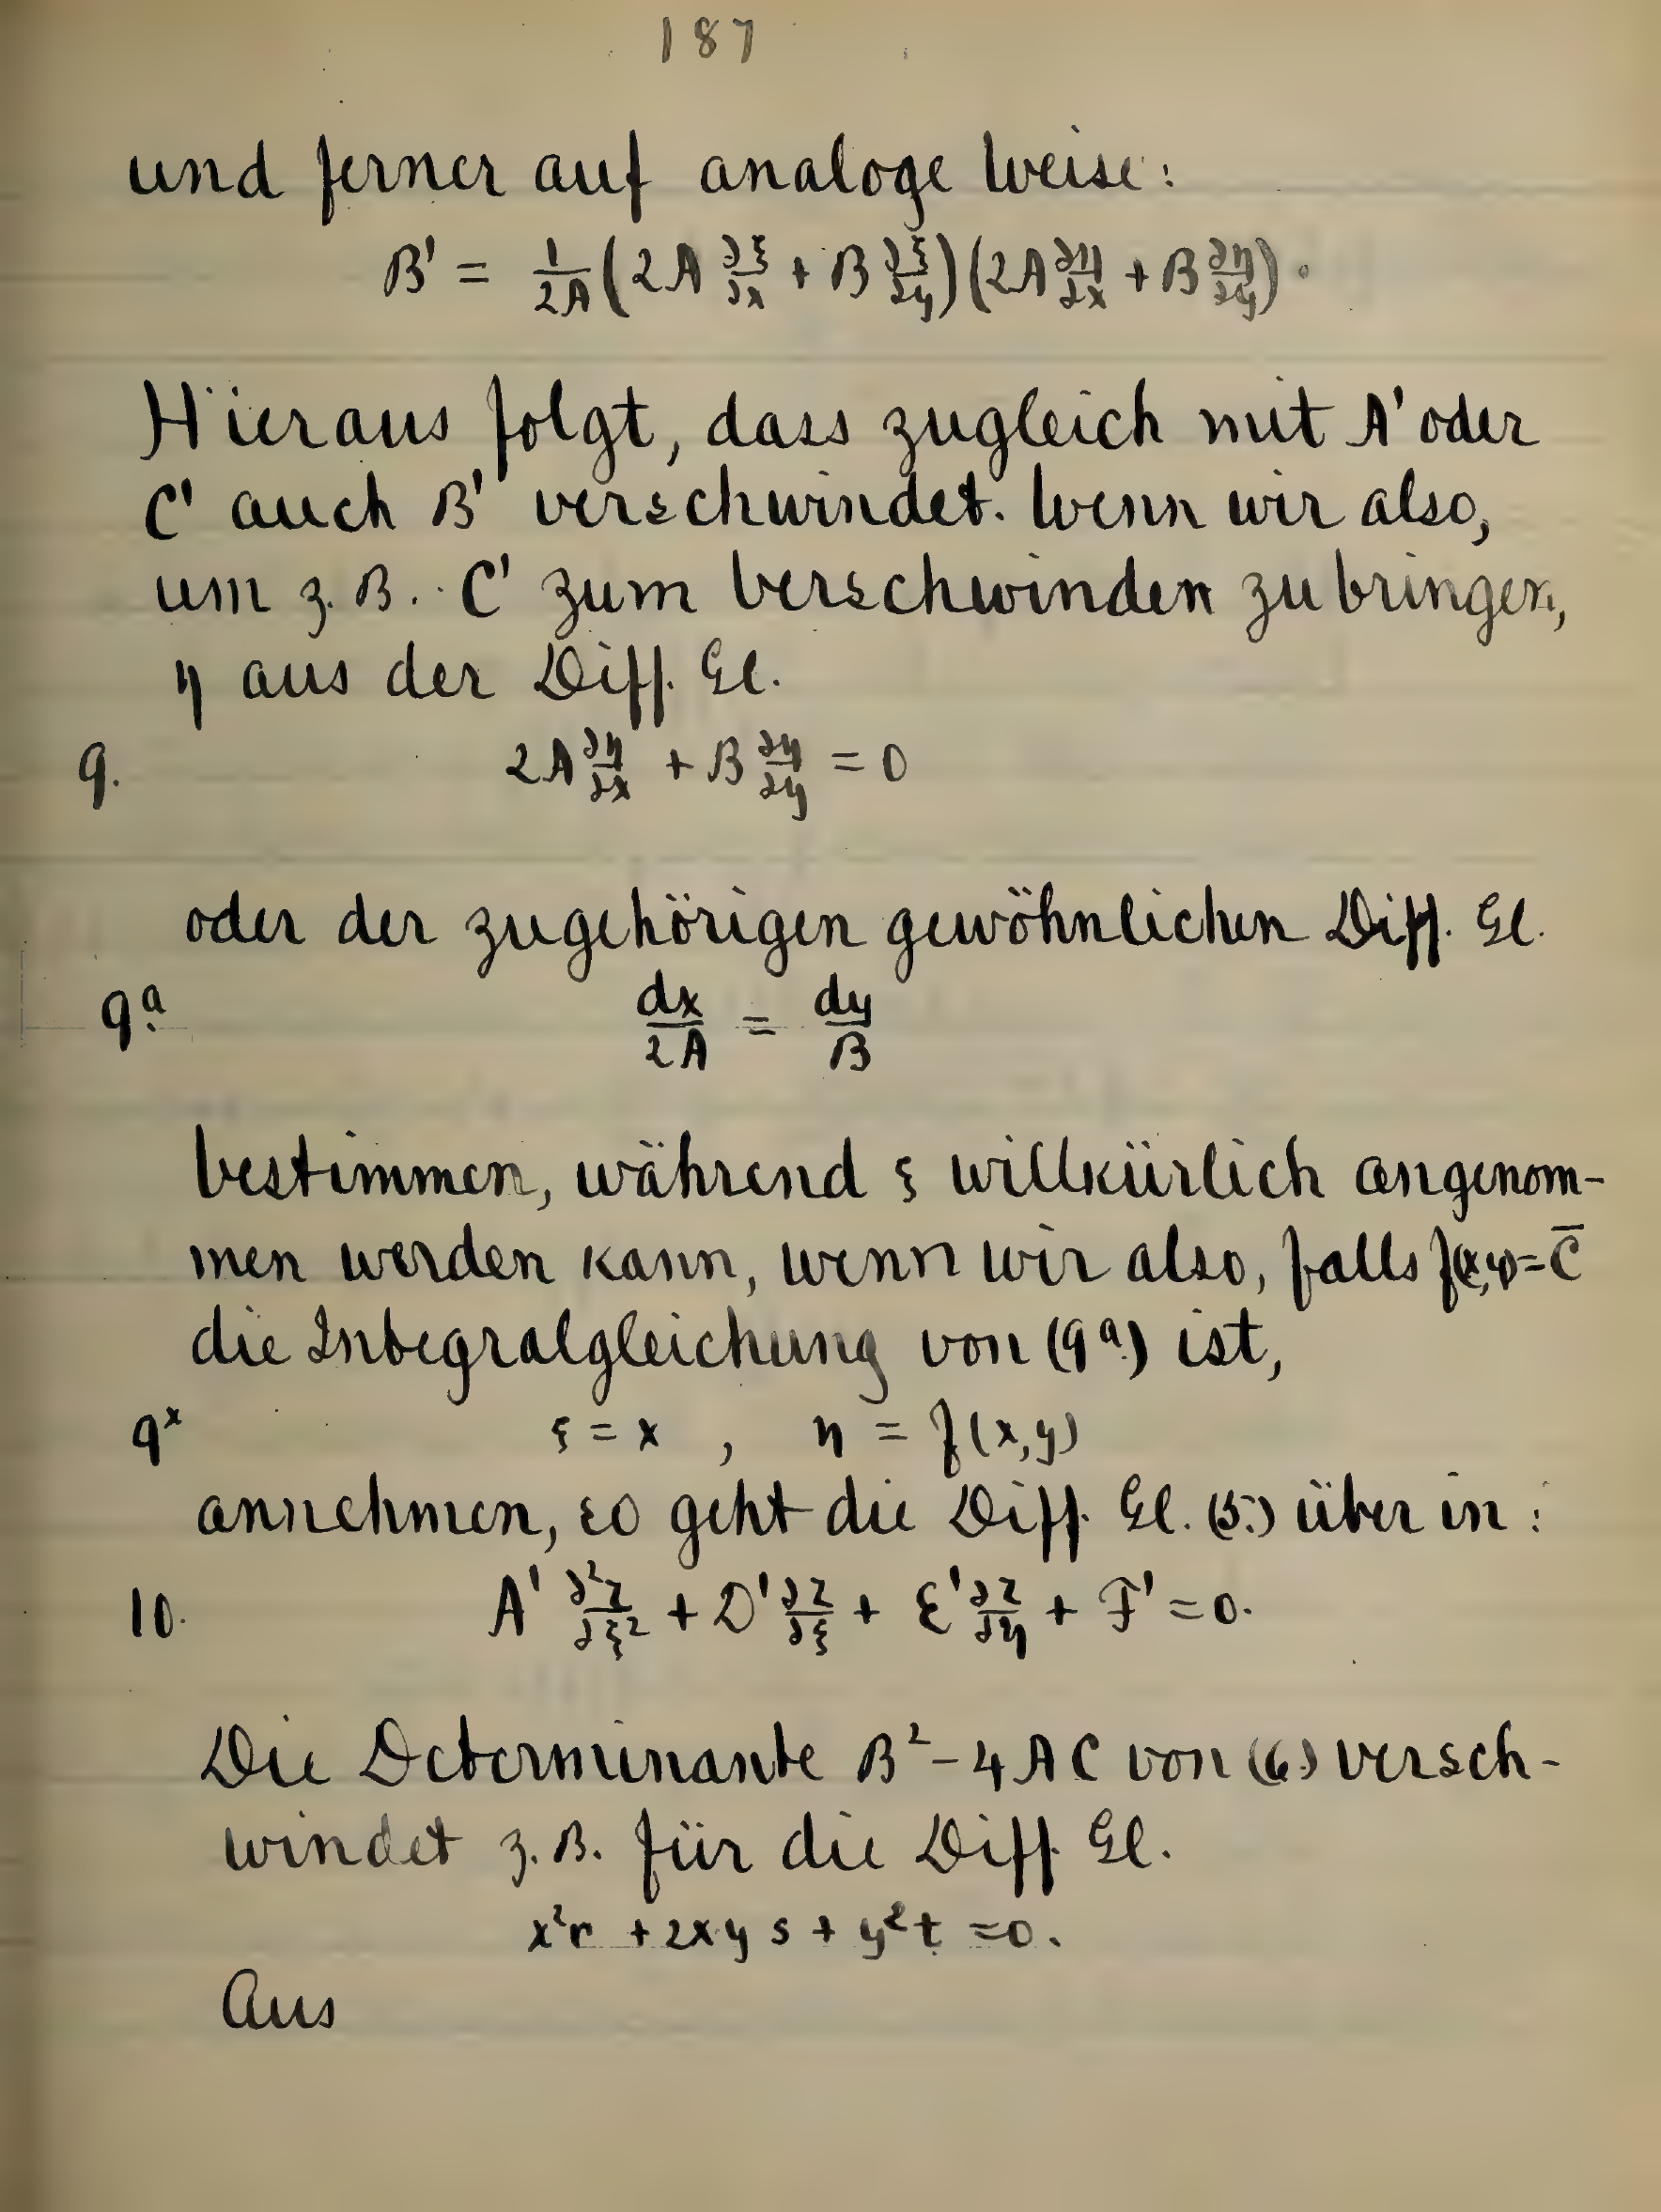 187
und ferner auf analoge Weise:
B' = 1/2A (2A ∂ξ/∂x + B ∂ξ/∂y)(2A ∂η/∂x + B ∂η/∂y).
Hieraus folgt, dass zugleich mit A' oder
C' auch B' verschwindet. Wenn wir also,
um z. B. C' zum Verschwinden zu bringen,
η aus der Diff. Gl.
9. 2A ∂η/∂x + B ∂η/∂y = 0
oder der zugehörigen gewöhnlichen Diff. Gl.
9a. dx/2A = dy/B
bestimmen, während ξ willkürlich angenom-
men werden kann, wenn wir also, falls f(x,y)=C̄
die Integralgleichung von (9a.) ist,
9x ξ = x , η = f(x,y)
annehmen, so geht die Diff. Gl. (5.) über in:
10. A' ∂²z/∂ξ² + D' ∂z/∂ξ + E' ∂z/∂η + F' = 0.
Die Determinante B² - 4AC von (6.) versch-
windet z. B. für die Diff. Gl.
x²r + 2xy s + y²t = 0.
Aus